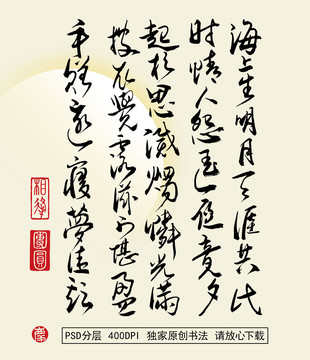 海上生明月天涯共此
时情人怨遥夜竟夕
起相思滅燭憐光滿
披衣覺露滋不堪盈
手贈還寢夢佳期
相逢
團圓
PSD分层 400DPI 独家原创书法 请放心下载